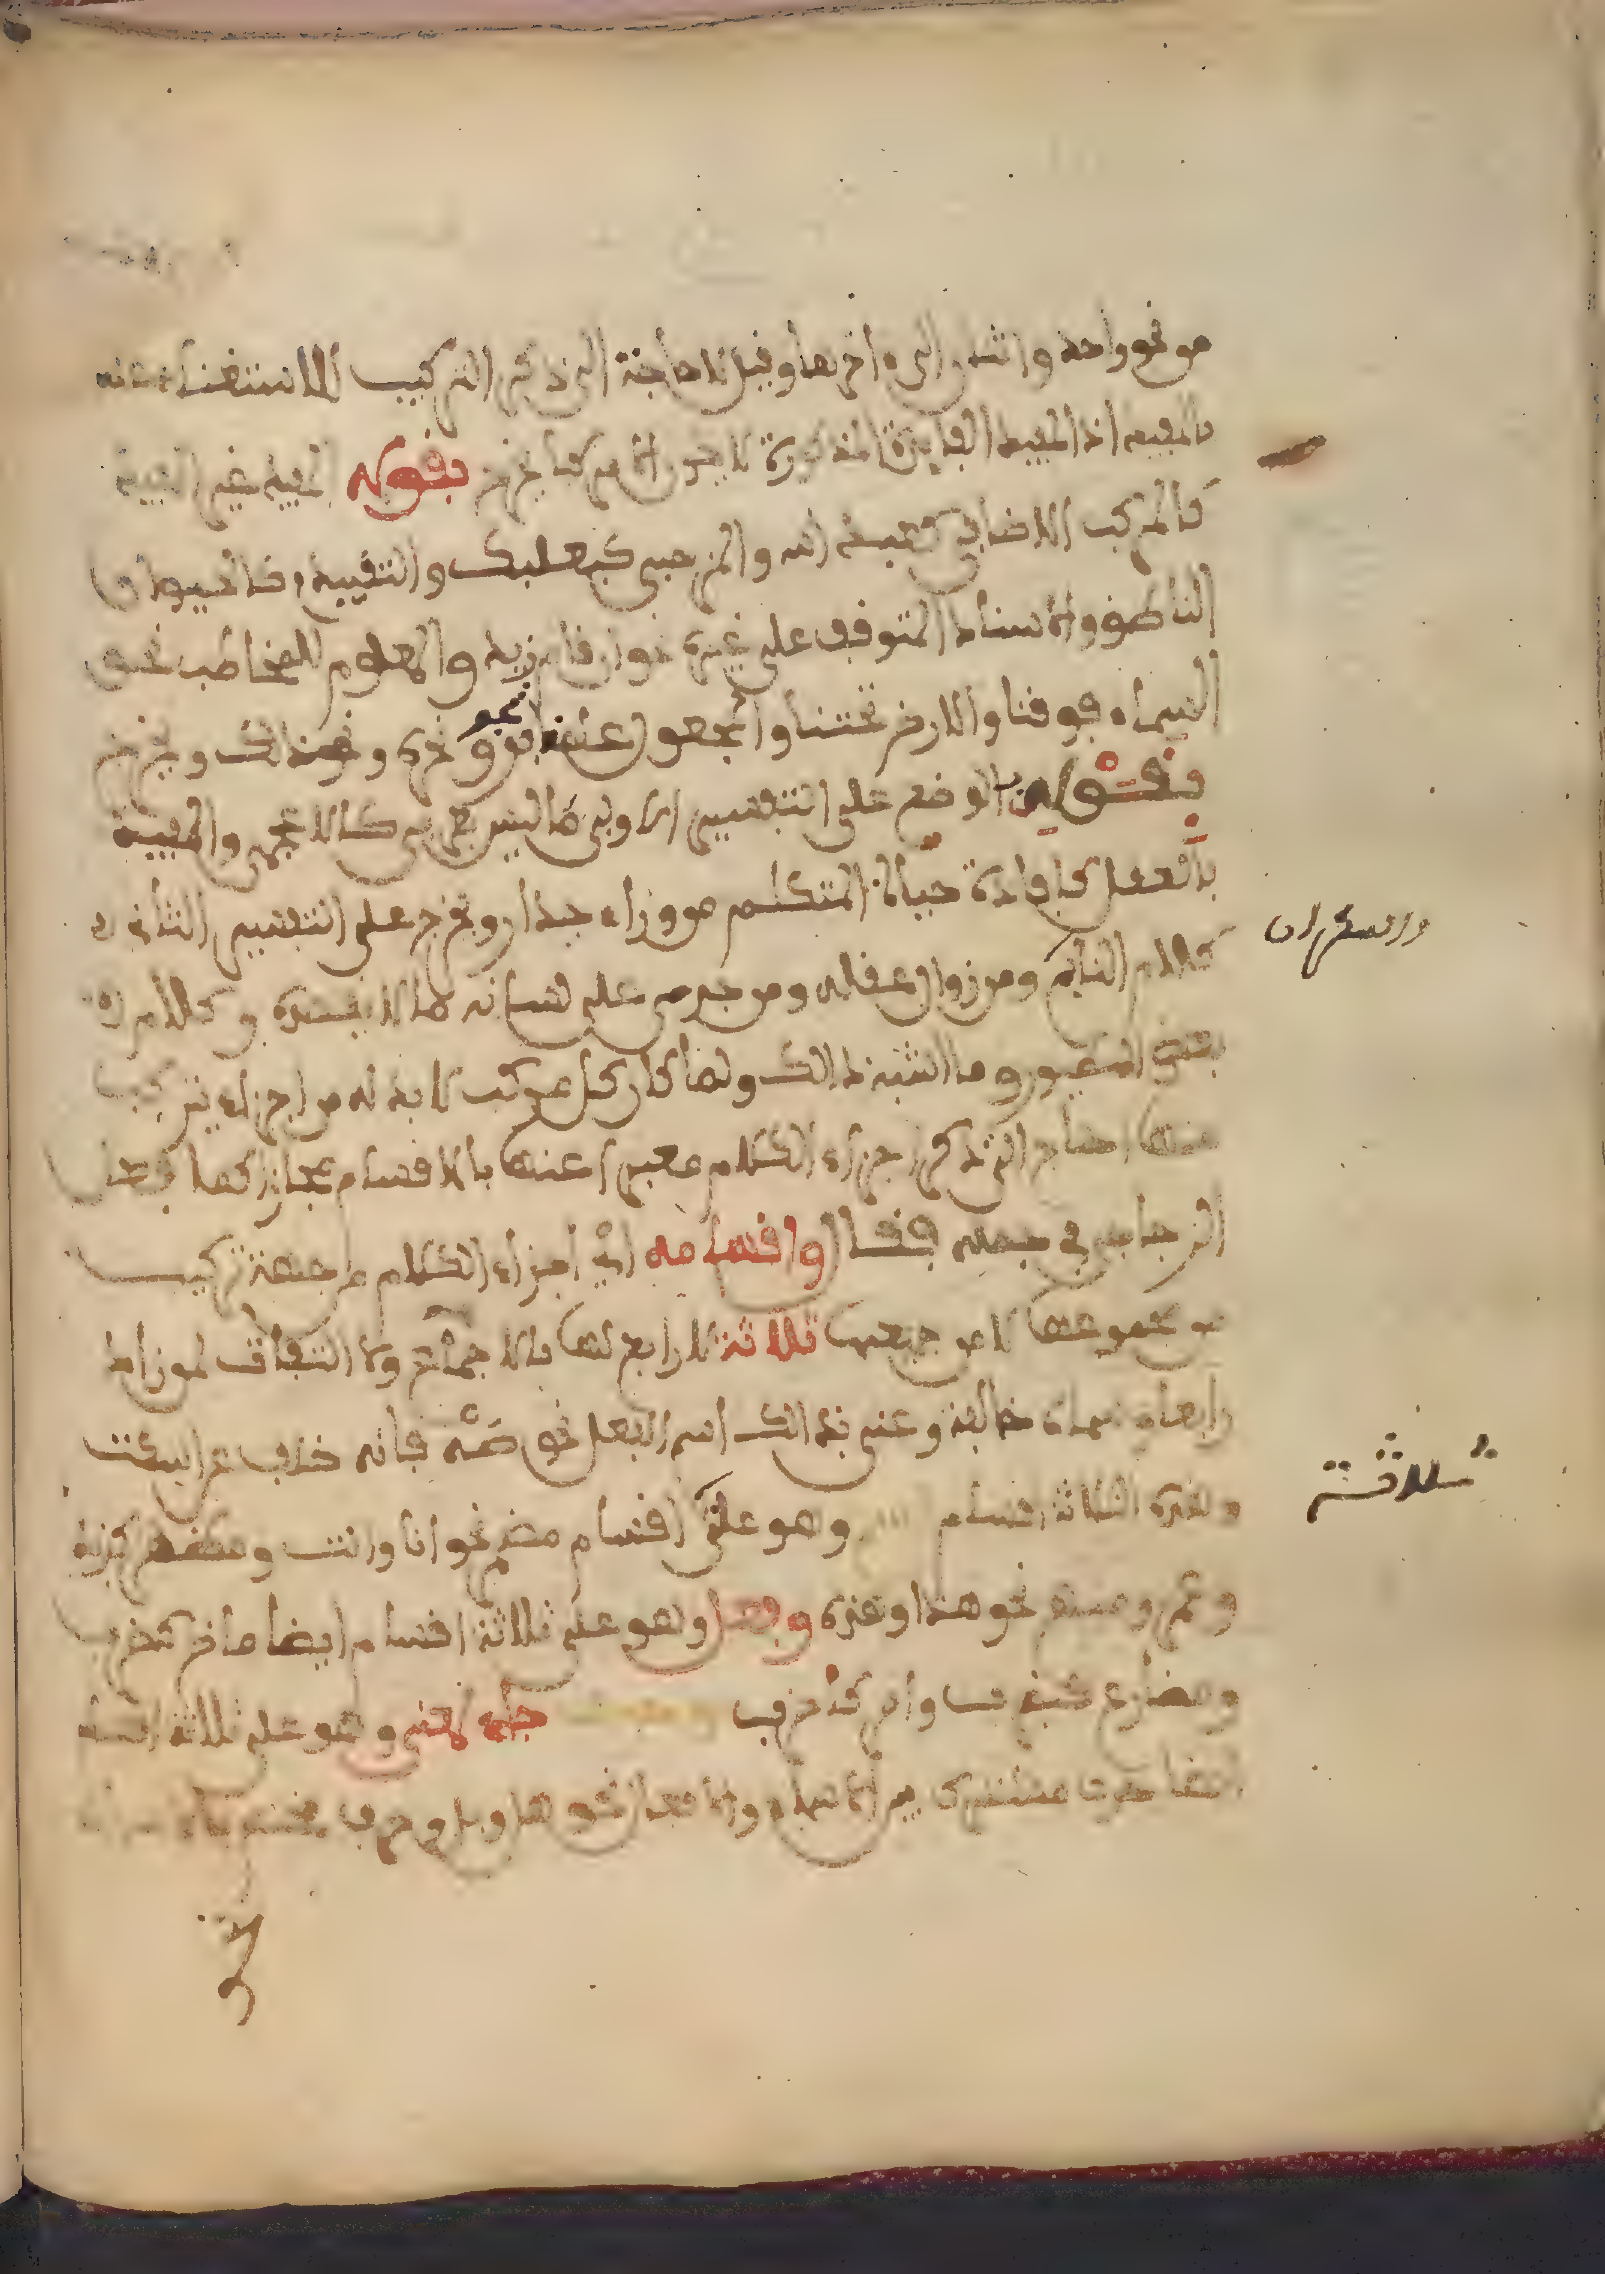 من نحو واحد واثنان الى ءاخرها وقيل لا حاجة الى ذكر التركيب للاستغناء عنه
بالمفيد اذ المفيد الفايدة المذكورة لا يكون الا مركبا يخرج بقوله المفيد غير المفيد
كالمركب الاضافي كعبد الله والمزجي كبعلبك والتقييدي كالحيوان
الناطق والاسناد المتوقف على غيره نحو ان قام زيد والمعلوم للمخاطب نحو
السماء فوقنا والارض تحتنا والمجعول علما نحو برق نحره ونحو ذالك ويخرج
بقوله بالوضع على التفسير الاول ما ليس بعربي كالاعجمي والمفيد
بالعقل كافادة حياة المتكلم من وراء جدار ويخرج على التفسير الثاني
كلام النايم ومن زال عقله ومن جرى على لسانه ما لا يقصده وكلام
والسكران
بعض الطيور وما اشبه ذالك ولما كان كل مركب لا بد له من اجزاء يتركب
منها احتاج الى ذكر اجزاء الكلام معبرا عنها بالاقسام مجازا كما فعل
الزجاجي في جمله فقال واقسامه اي اجزاء الكلام من جهة تركيبه
من مجموعها لا من جميعها ثلاثة لا رابع لها بالاجماع ولا التفات لمن زاد
رابعا وسماه خالفة وعنى بذالك اسم الفعل نحو صه فانه خلف عن اسكت
وهذه الثلاثة اقسام وهو على اقسام مضمر نحو انا وانت ومظهر كزيد
ثلاثة
وعمرو ومبهم نحو هذا وهذه وفعل وهو على ثلاثة اقسام ايضا ماض كضرب
ومضارع كيضرب وامر كاضرب جاء لمعنى وهو على ثلاثة اقسام
ايضا حرف مشترك بين الاسماء والافعال نحو هل وبل وحرف مختص